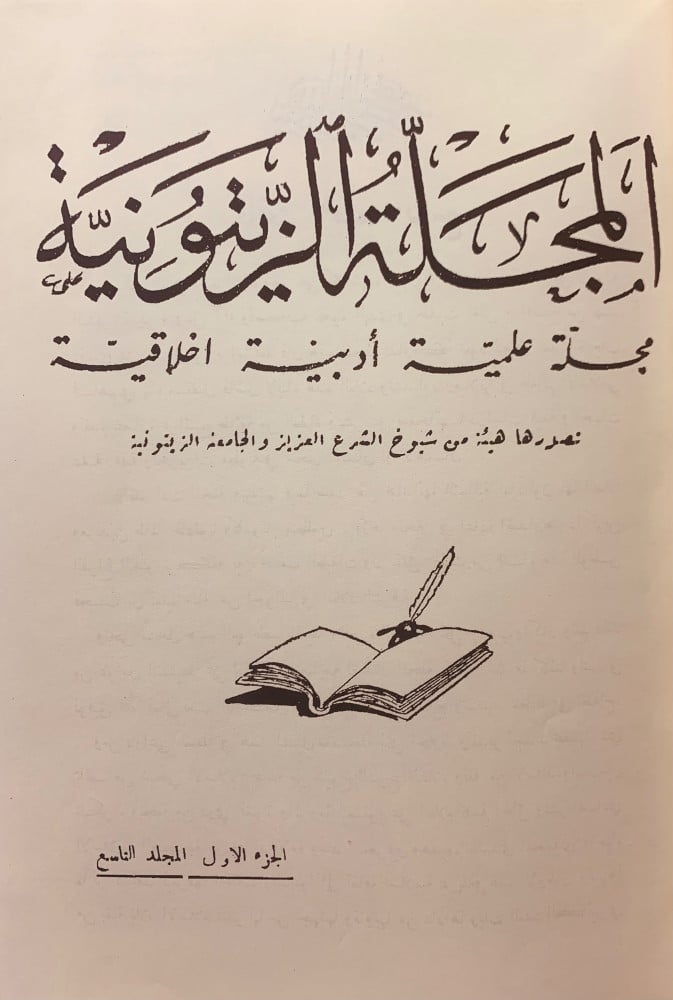 المَجَلَّةُ الزَّيتُونِيَّة
مجلّة علميّة أدبيّة اخلاقيّة
تصدرها هيئة من شيوخ الشرع العزيز والجامعة الزيتونية
الجزء الاول المجلد التاسع